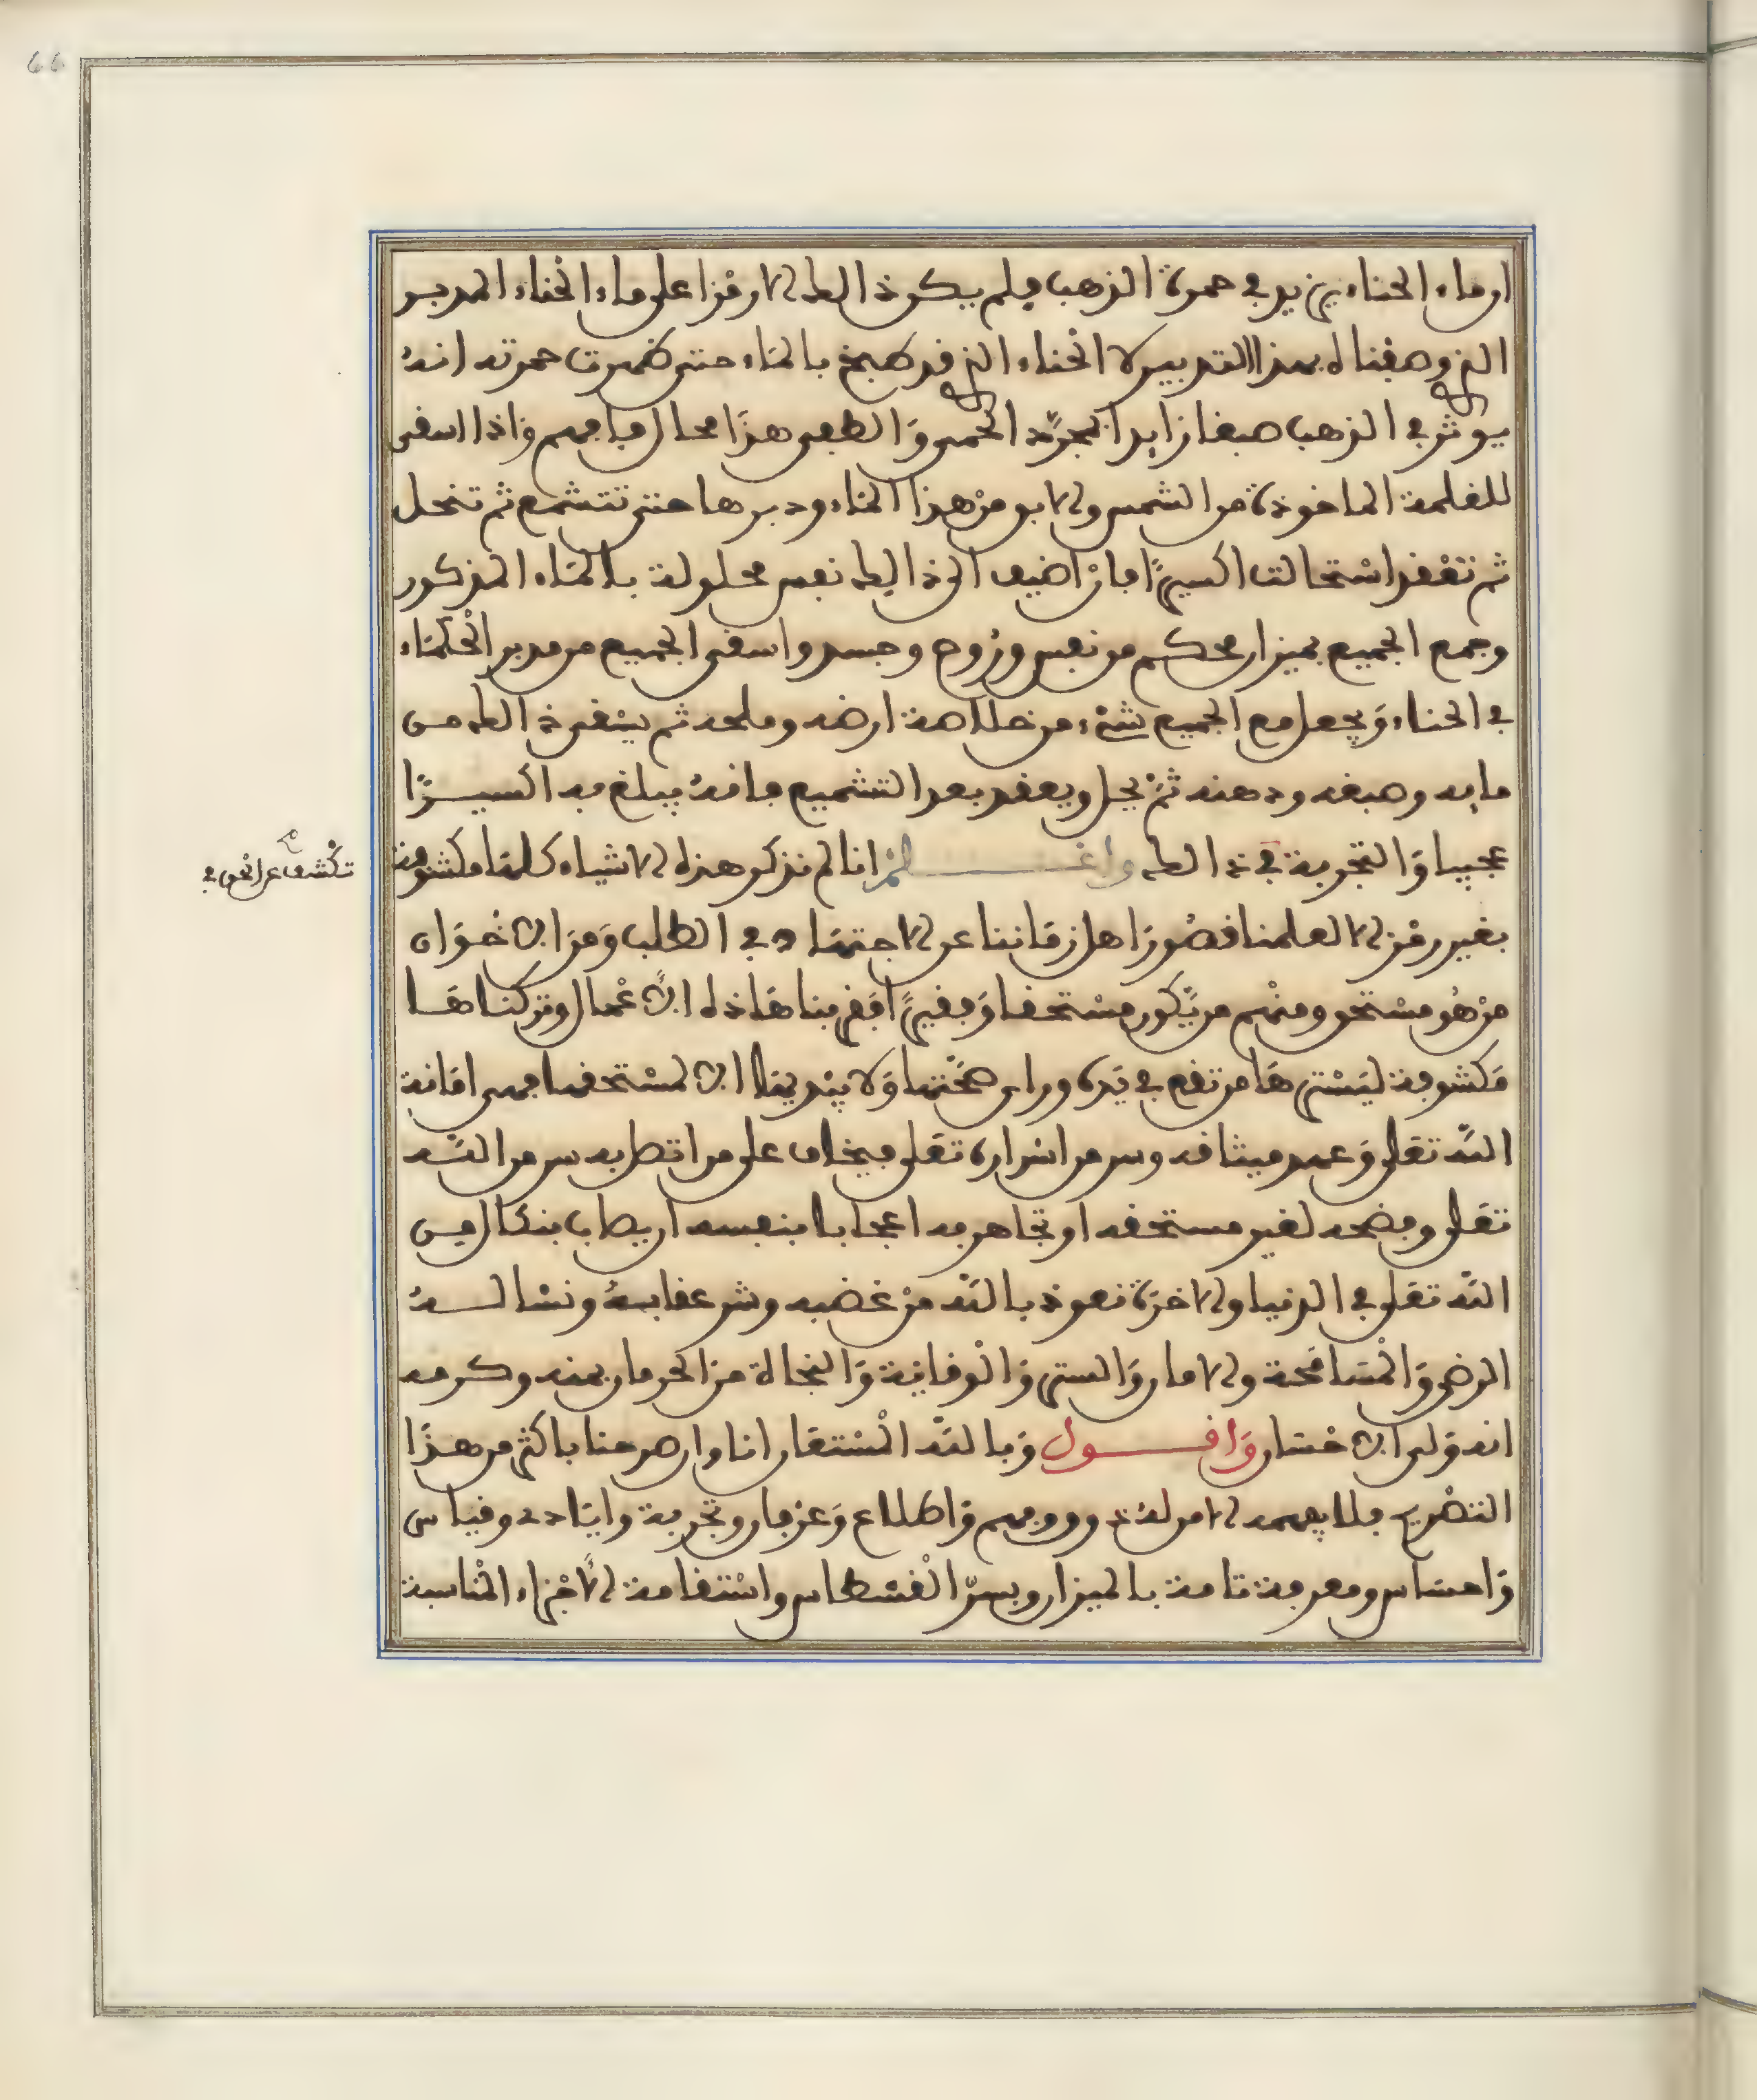 ان ماء الحناء يزيد في حمرة الذهب فلم يكن ذالك الا رمزا على ماء الحناء المدبر
الذي وصفناه بهذا التدبير لا الحناء الذي قد طبخ بالماء حتى ظهرت حمرته انه
يوثر في الذهب صبغا زايدا لمجرد الحمى والطفى هذا محال فافهم واذا اسقى
للقلمة الماخوذة من الشمس والابو من هذا الماء ودبرها حتى تتشمع ثم تنحل
ثم تنعقد استحالت اكسيرا فان اضيف الى ذالك نفس محلولة بالماء المذكور
وجمع الجميع بميزان محكم من نفس وروح وجسد واسقى الجميع من مدبر الحكماء
في الحناء ويجعل مع الجميع شيء من خلاصة ارضه وملحه ثم يسقى ذالك من
مايه وصبغه ودهنه ثم يحل ويعقد بعد التشميع فانه يبلغ به اكسيرا
عجيبا والتجربة في ذالك واعلم انا لم نذكر هذه الاشياء كلها مكشوفة
تكشف عن الحق في
بغير رمز الا لعلمنا قصور اهل زماننا عن الاجتهاد في الطلب ومن الاخوان
من هو مستحق ومنهم من يكون مستحقا وفقيرا فقربنا هاذه الاعمال وتركناها
مكشوفة ليسترها من تقع في يده وراى صحتها ولا يبديها الا لمستحقها فهى امانة
الله تعلى وعهد ميثاقه وسر من اسراره تعلى فيخاف على من اتصل به سر من الله
تعلى وفضحه لغير مستحقه او تجاهر به اعجابا بنفسه ان يصاب بنكال من
الله تعلى في الدنيا والاخرة نعوذ بالله من غضبه وشر عقابه ونساله
الرضى والمسامحة والامان والستر والوقاية والنجاة من الحرمان بمنه وكرمه
انه ولي الاحسان واقول وبالله المستعان انا وان صرحنا باكثر من هذا
التصريح فلا يفهمه الا من له ذوق وفهم واطلاع وعرفان وتجربة وايادى وقياس
واحساس ومعرفة تامة بالميزان وبسر القسطاس واستقامة الاجزاء المناسبة